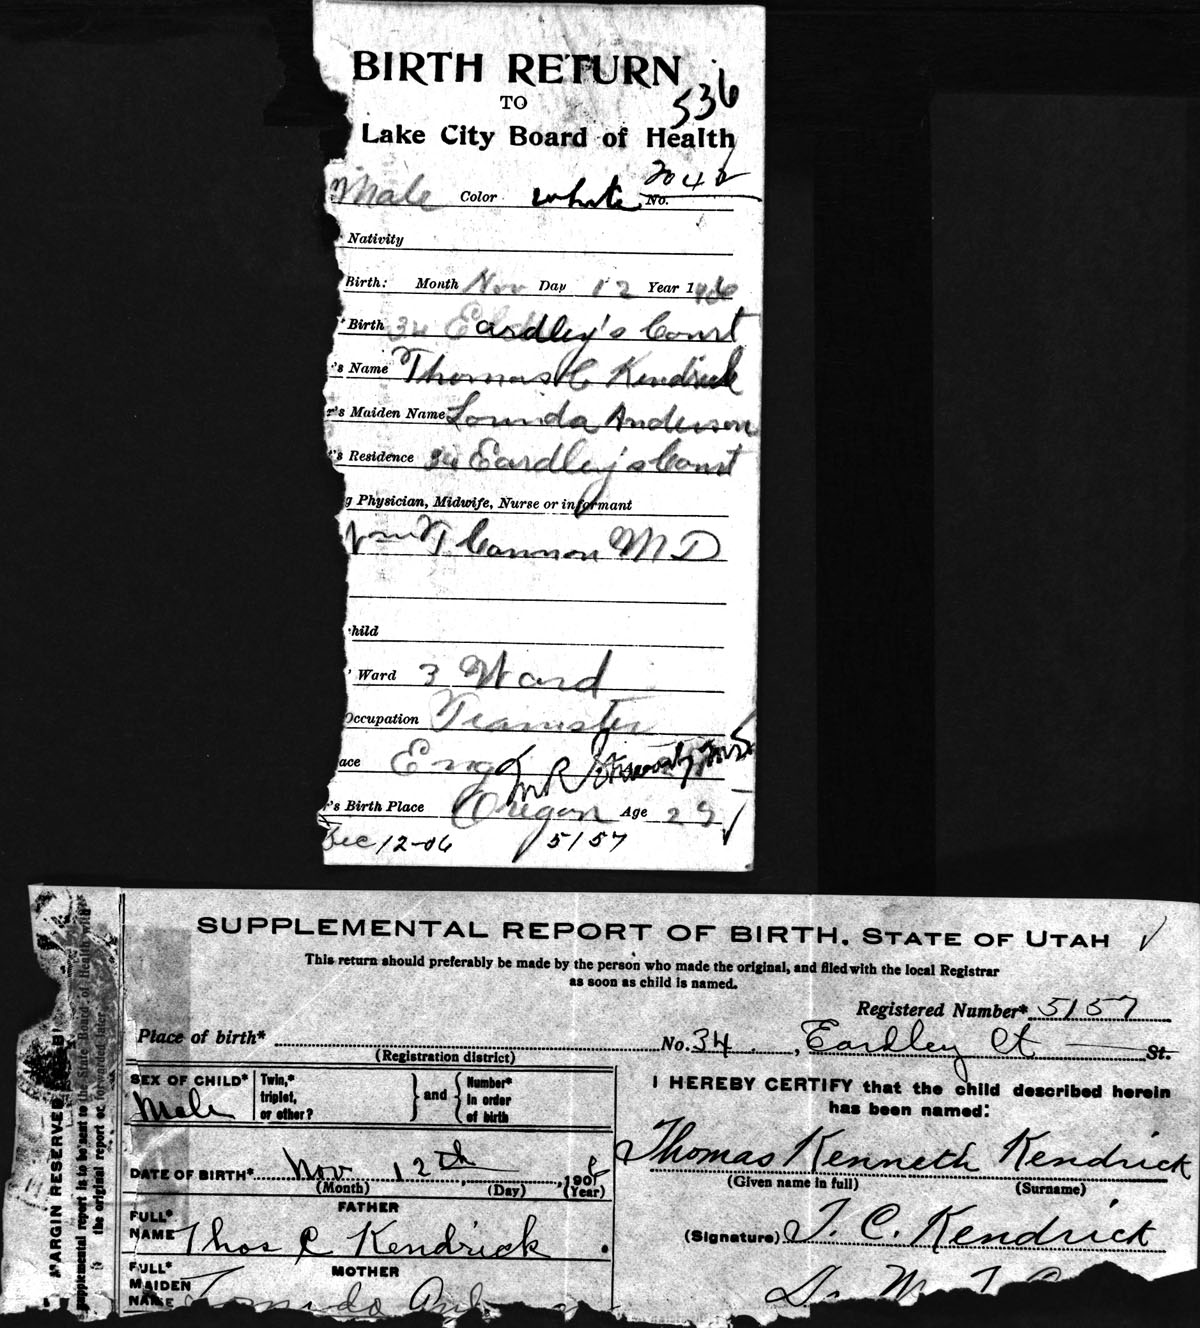 BIRTH RETURN
536
TO
Lake City Board of Health
Male Color white No. 2042
Nativity
Birth: Month Nov Day 12 Year 1906
Birth 34 Eardley's Court
's Name Thomas C Kendrick
r's Maiden Name Lorinda Anderson
's Residence 34 Eardley's Court
g Physician, Midwife, Nurse or informant
Wm T Cannon MD
hild
Ward 3 Ward
Occupation Teamster
ace Eng
's Birth Place Oregon Age 29
Dec 12-06 5157
SUPPLEMENTAL REPORT OF BIRTH. STATE OF UTAH
This return should preferably be made by the person who made the original, and filed with the local Registrar
as soon as child is named.
Registered Number* 5157
Place of birth* No. 34, Eardley Ct St.
(Registration district)
SEX OF CHILD* Male
Twin,* triplet, or other?
and
Number* in order of birth
I HEREBY CERTIFY that the child described herein
has been named:
DATE OF BIRTH* Nov 12th, 1906
(Month) (Day) (Year)
Thomas Kenneth Kendrick
(Given name in full) (Surname)
FATHER
FULL* NAME Thos C Kendrick
(Signature) T. C. Kendrick
MOTHER
FULL* MAIDEN NAME
MARGIN RESERVED
supplemental report is to be sent to the State Board of Health with
the original report or forwarded later